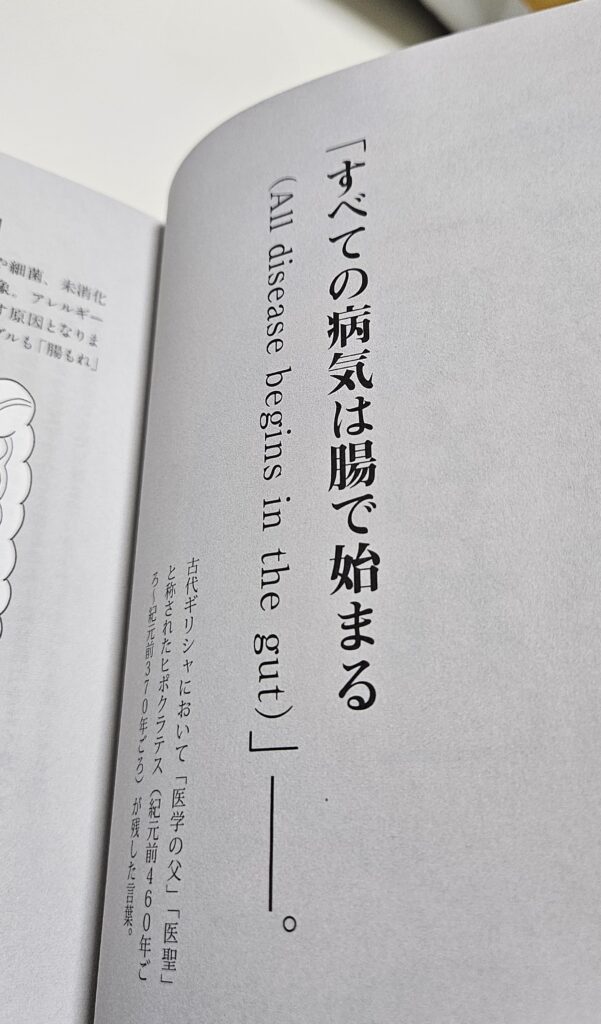 「すべての病気は腸で始まる
（All disease begins in the gut）」――。
古代ギリシャにおいて「医学の父」「医聖」
と称されたヒポクラテス（紀元前460年ご
ろ〜紀元前370年ごろ）が残した言葉。
や細菌、未消化
象。アレルギー
す原因となりま
ブルも「腸もれ」